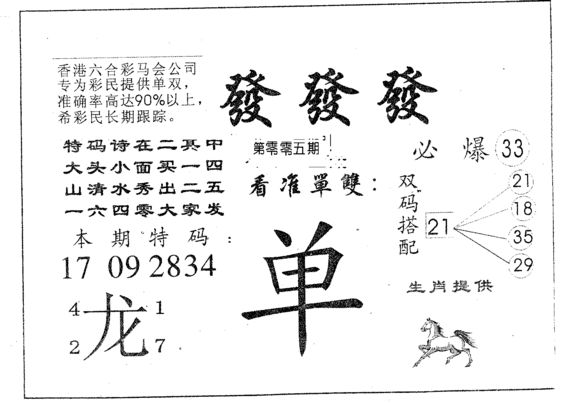 香港六合彩马会公司
专为彩民提供单双,
准确率高达90%以上,
希彩民长期跟踪。
發發發
特码诗在二其中
大头小面买一四
山清水秀出二五
一六四零大家发
第零零五期
看准單雙:
单
必爆 33
双码搭配
21
21
18
35
29
本期特码:
17 09 28 34
4 1
龙
2 7
生肖提供